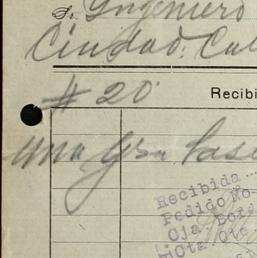 S. Ingeniero
Ciudad. Cal
# 20
Recibi
una gra
Recibida
Pedido No
Cja. Bord
Cta. Cte